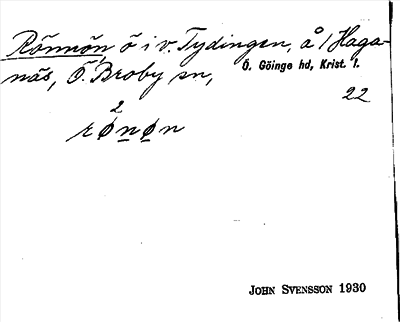 Rönnön, ö i v. Tydingen, å 1 Haga-
näs, Ö. Broby sn, Ö. Göinge hd, Krist. l.
22
2
rønøn
JOHN SVENSSON 1930